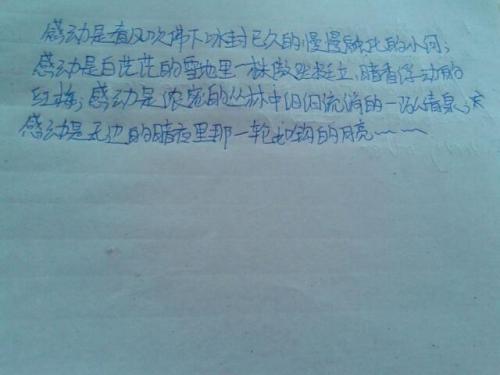 感动是春风吹拂下冰封已久的慢慢融化的小河；
感动是白茫茫的雪地里一株傲然挺立、暗香浮动的
红梅；感动是浓密的丛林中汩汩流淌的一泓清泉；
感动是无边的暗夜里那一轮如钩的月亮～～